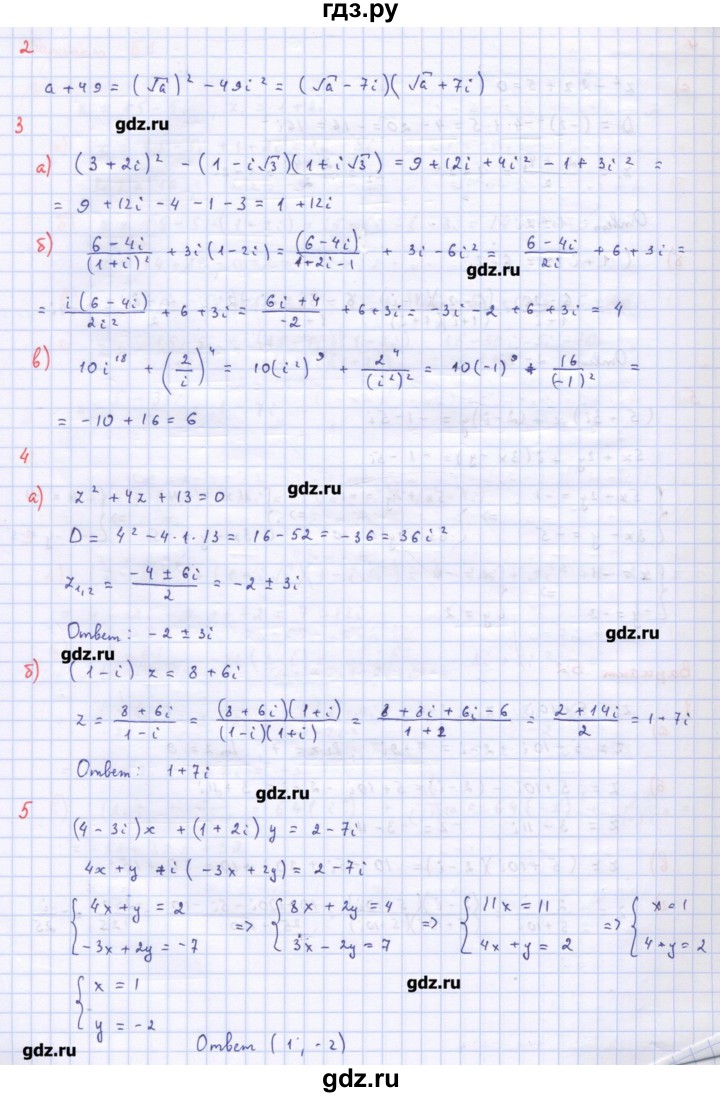 гдз.ру
2
a + 49 = (√a)² − 49i² = (√a − 7i)(√a + 7i)
gdz.ru
3
а) (3 + 2i)² − (1 − i√3)(1 + i√3) = 9 + 12i + 4i² − 1 + 3i² =
= 9 + 12i − 4 − 1 − 3 = 1 + 12i
б) (6 − 4i)/(1 + i)² + 3i(1 − 2i) = (6 − 4i)/(1 + 2i − 1) + 3i − 6i² = (6 − 4i)/2i + 6 + 3i =
gdz.ru
= i(6 − 4i)/2i² + 6 + 3i = (6i + 4)/−2 + 6 + 3i = −3i − 2 + 6 + 3i = 4
в) 10i¹⁸ + (2/i)⁴ = 10(i²)⁹ + 2⁴/(i²)² = 10(−1)⁹ + 16/(−1)² =
= −10 + 16 = 6
4
gdz.ru
а) z² + 4z + 13 = 0
D = 4² − 4·1·13 = 16 − 52 = −36 = 36i²
z₁,₂ = (−4 ± 6i)/2 = −2 ± 3i
Ответ: −2 ± 3i
gdz.ru
gdz.ru
б) (1 − i) z = 8 + 6i
z = (8 + 6i)/(1 − i) = (8 + 6i)(1 + i)/(1 − i)(1 + i) = (8 + 8i + 6i − 6)/(1 + 1) = (2 + 14i)/2 = 1 + 7i
Ответ: 1 + 7i
gdz.ru
5
(4 − 3i)x + (1 + 2i)y = 2 − 7i
4x + y + i(−3x + 2y) = 2 − 7i
{ 4x + y = 2 => { 8x + 2y = 4 => { 11x = 11 => { x = 1
−3x + 2y = −7 3x − 2y = 7 4x + y = 2 4 + y = 2
{ x = 1
gdz.ru
y = −2
Ответ (1 ; −2)
gdz.ru
gdz.ru